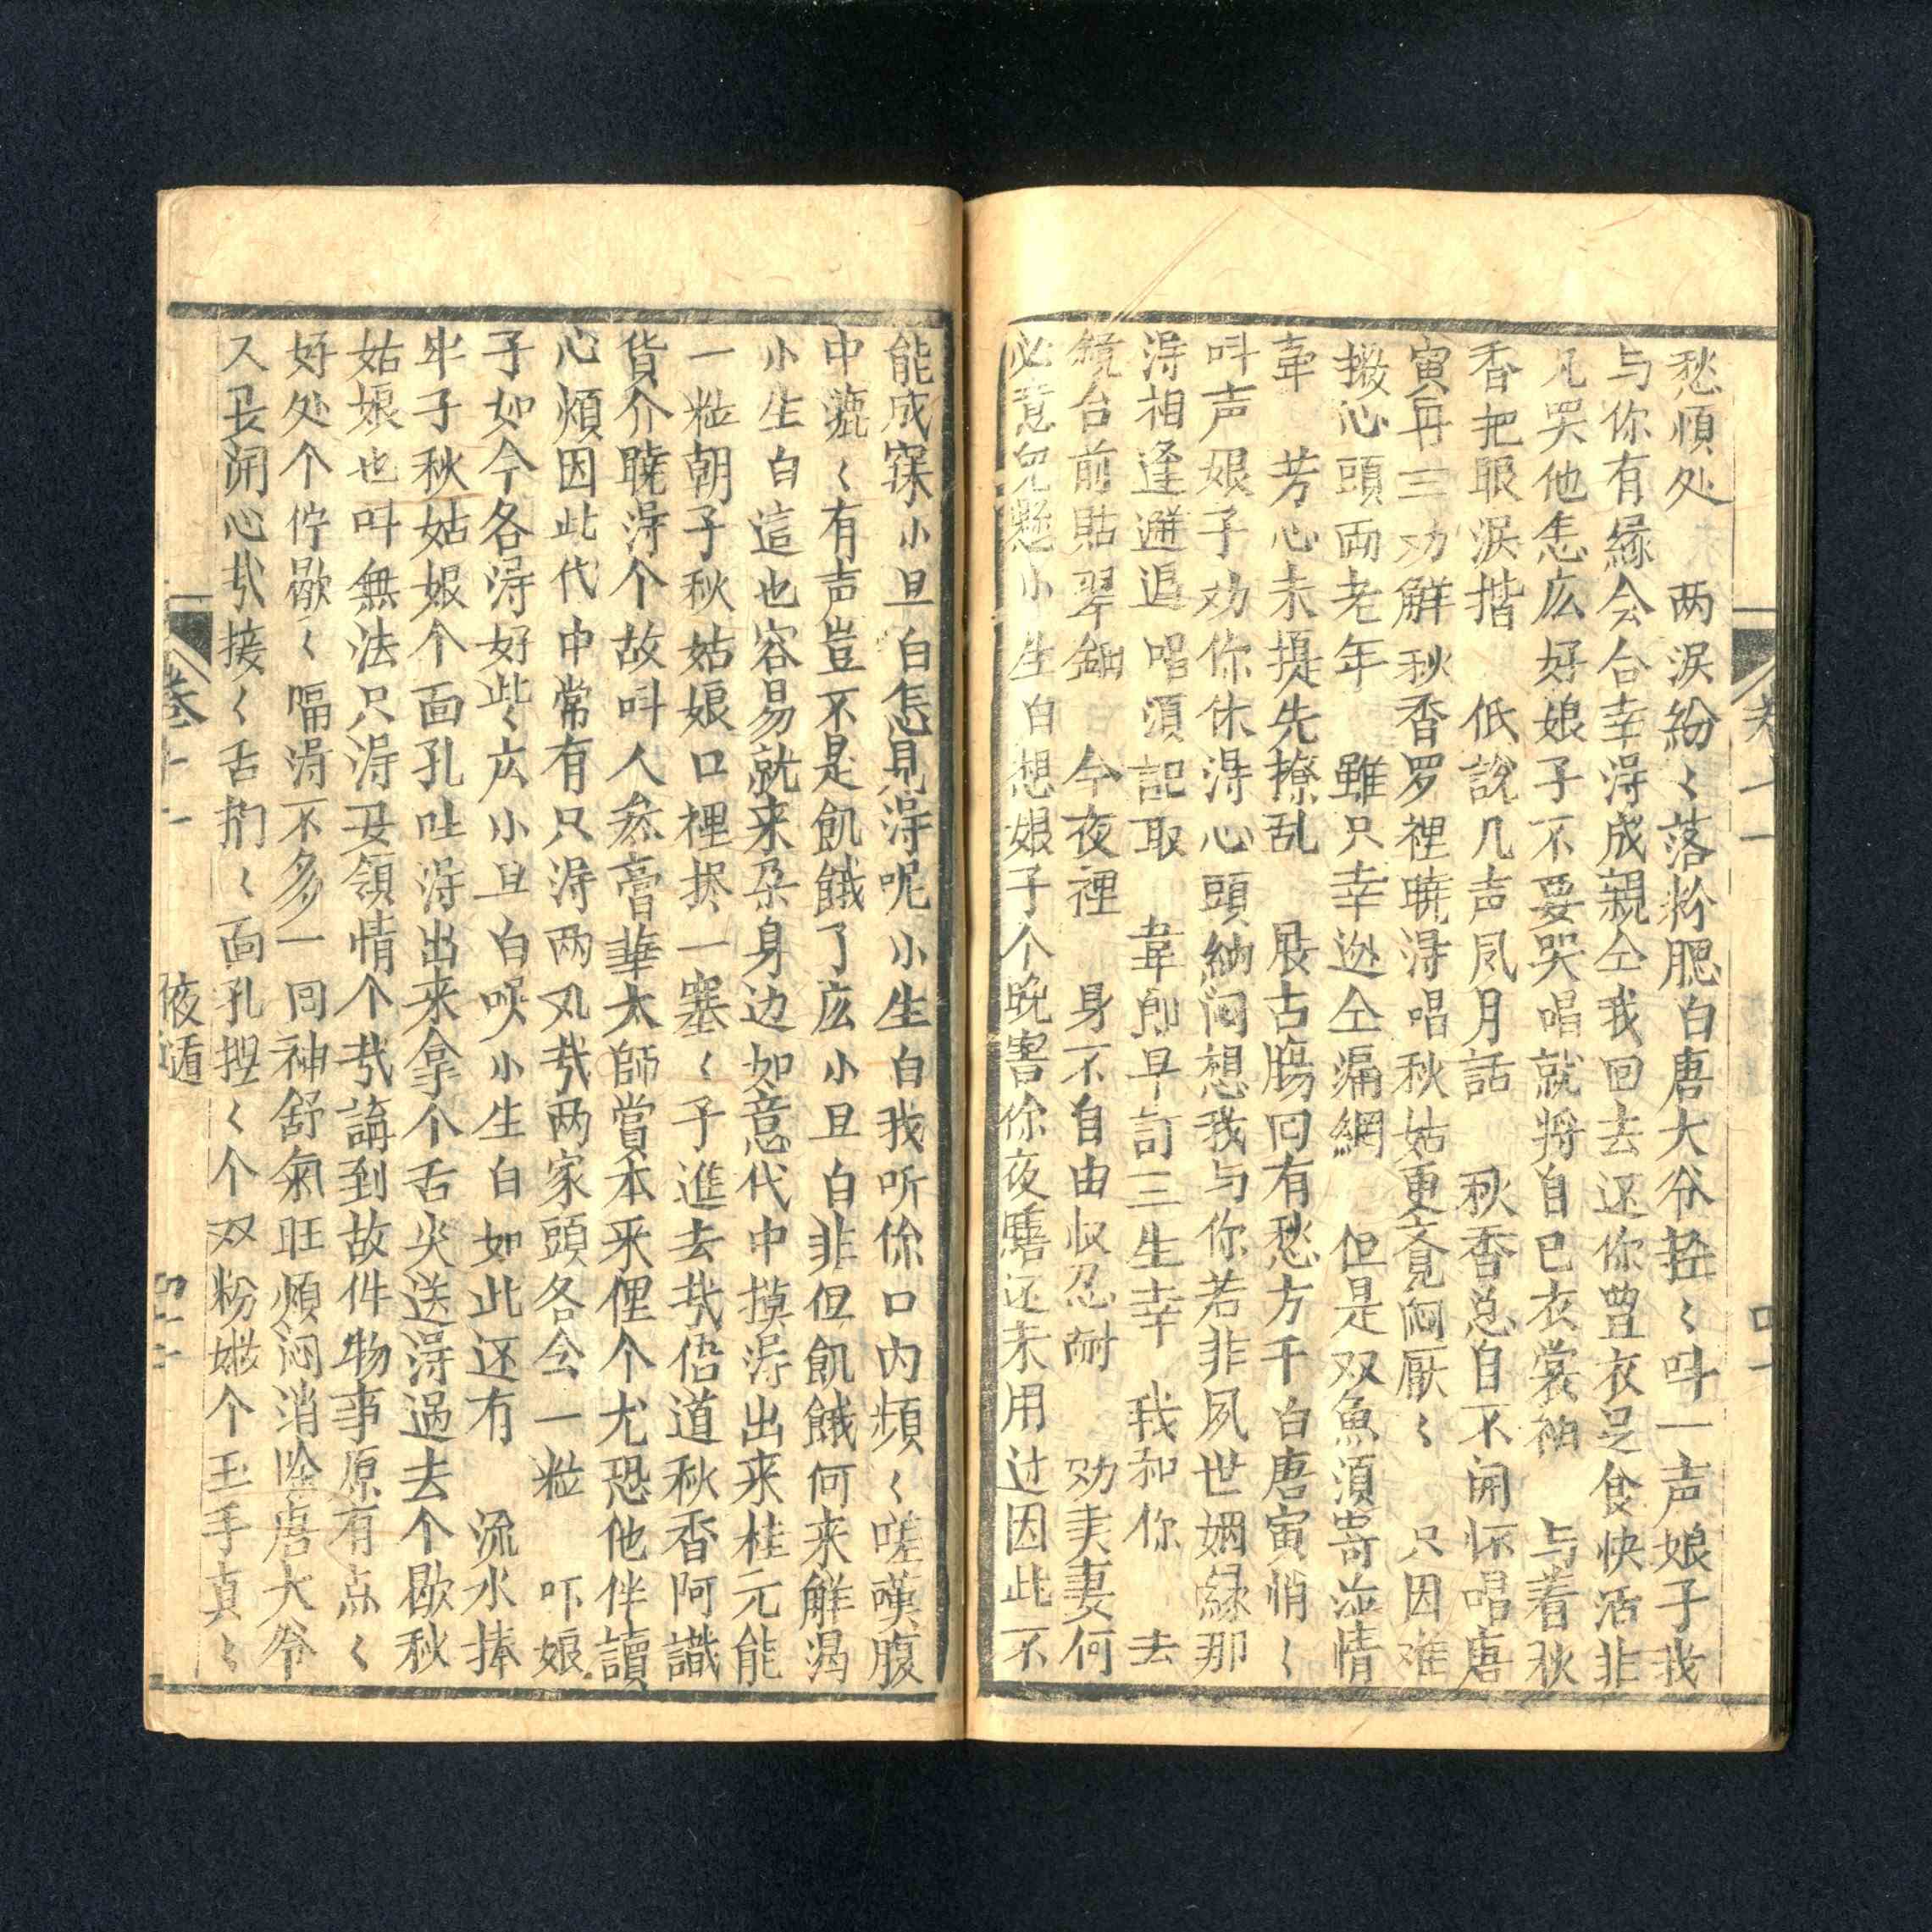 愁煩处　两淚紛〻落粉腮白唐大爷輕〻叫一声娘子我
与你有緣会合幸淂成親仝我回去还你豊衣足食快活非
凡哭他怎広好娘子不要哭唱就将自己衣裳袖　与着秋
香把眼淚揩　低說几声风月話　秋香总自不開怀唱唐
寅再三劝解秋香罗裡曉淂唱秋姑更竟悶厭〻　只因难
撇心頭両老年　雖只幸迯仝漏網　但是双魚須寄泣情
牽　芳心未提先撩乱　展古腸回有愁方千白唐寅悄〻
叫声娘子劝你休淂心頭納闷想我与你若非夙世姻緣那
淂相逢邂逅　唱須記取　韋郎早訂三生幸　我和你　去
鏡台前貼翠鈿　今夜裡　身不自由权忍耐　劝夫妻何
必意
小生白想娘子个晚害你夜
还未用过因此不
能成寐小旦白怎見淂呢小生白我听你口内頻〻嗟嘆腹
中漉〻有声豈不是飢餓了広小旦白非但飢餓何来解渴
小生白這也容易就来朶身边如意代中摸淂出来桂元能
一粒朝子秋姑娘口裡
一塞〻子進去
道秋香阿識
貨介曉淂个故叫人叅膏華太師賞本来俚个尤恐他伴讀
心煩因此代中常有只淂两
两家頭各会一粒　吓娘
子如今各淂好此〻広小旦白唉小生白如此还有　流水捧
牛子秋姑娘个面孔吐淂出来拿个舌尖送淂過去个歇秋
姑娘也叫無法只淂
領情个
論到故件物事原有点〻
好处个佇歇〻嗝淂不多一囘神舒氣旺煩闷消唫唐大爷
又
開心
接〻舌捫〻面孔
〻个双粉
个玉手真〻
卷十一